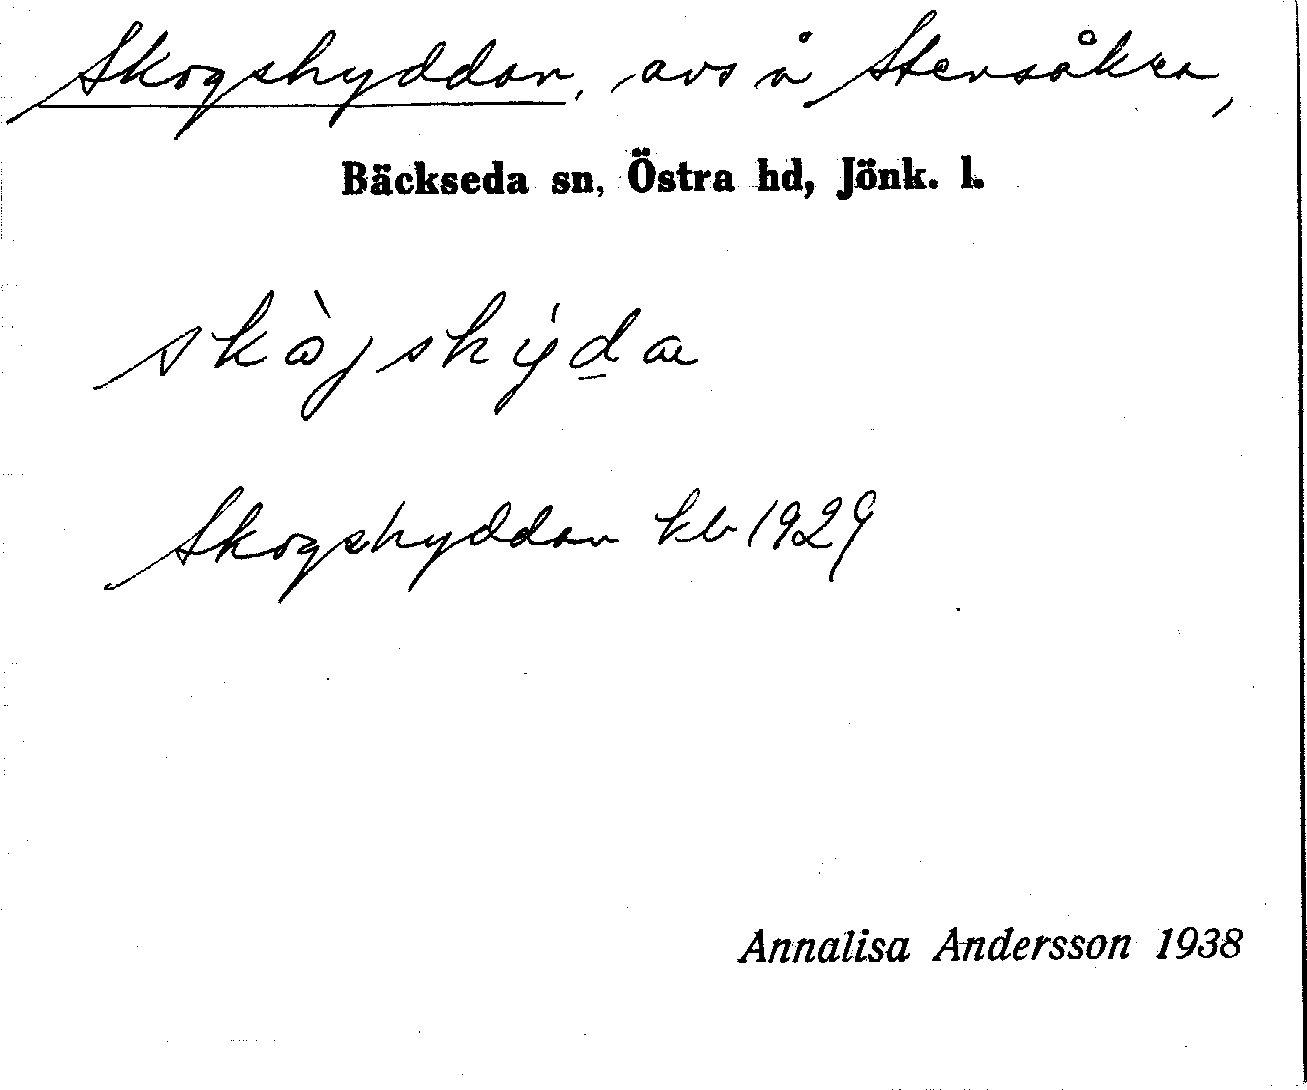 Skogshyddan, avs å Stensåkra,
Bäckseda sn, Östra hd, Jönk. l.
Skogshyddan kb 1929
Annalisa Andersson 1938